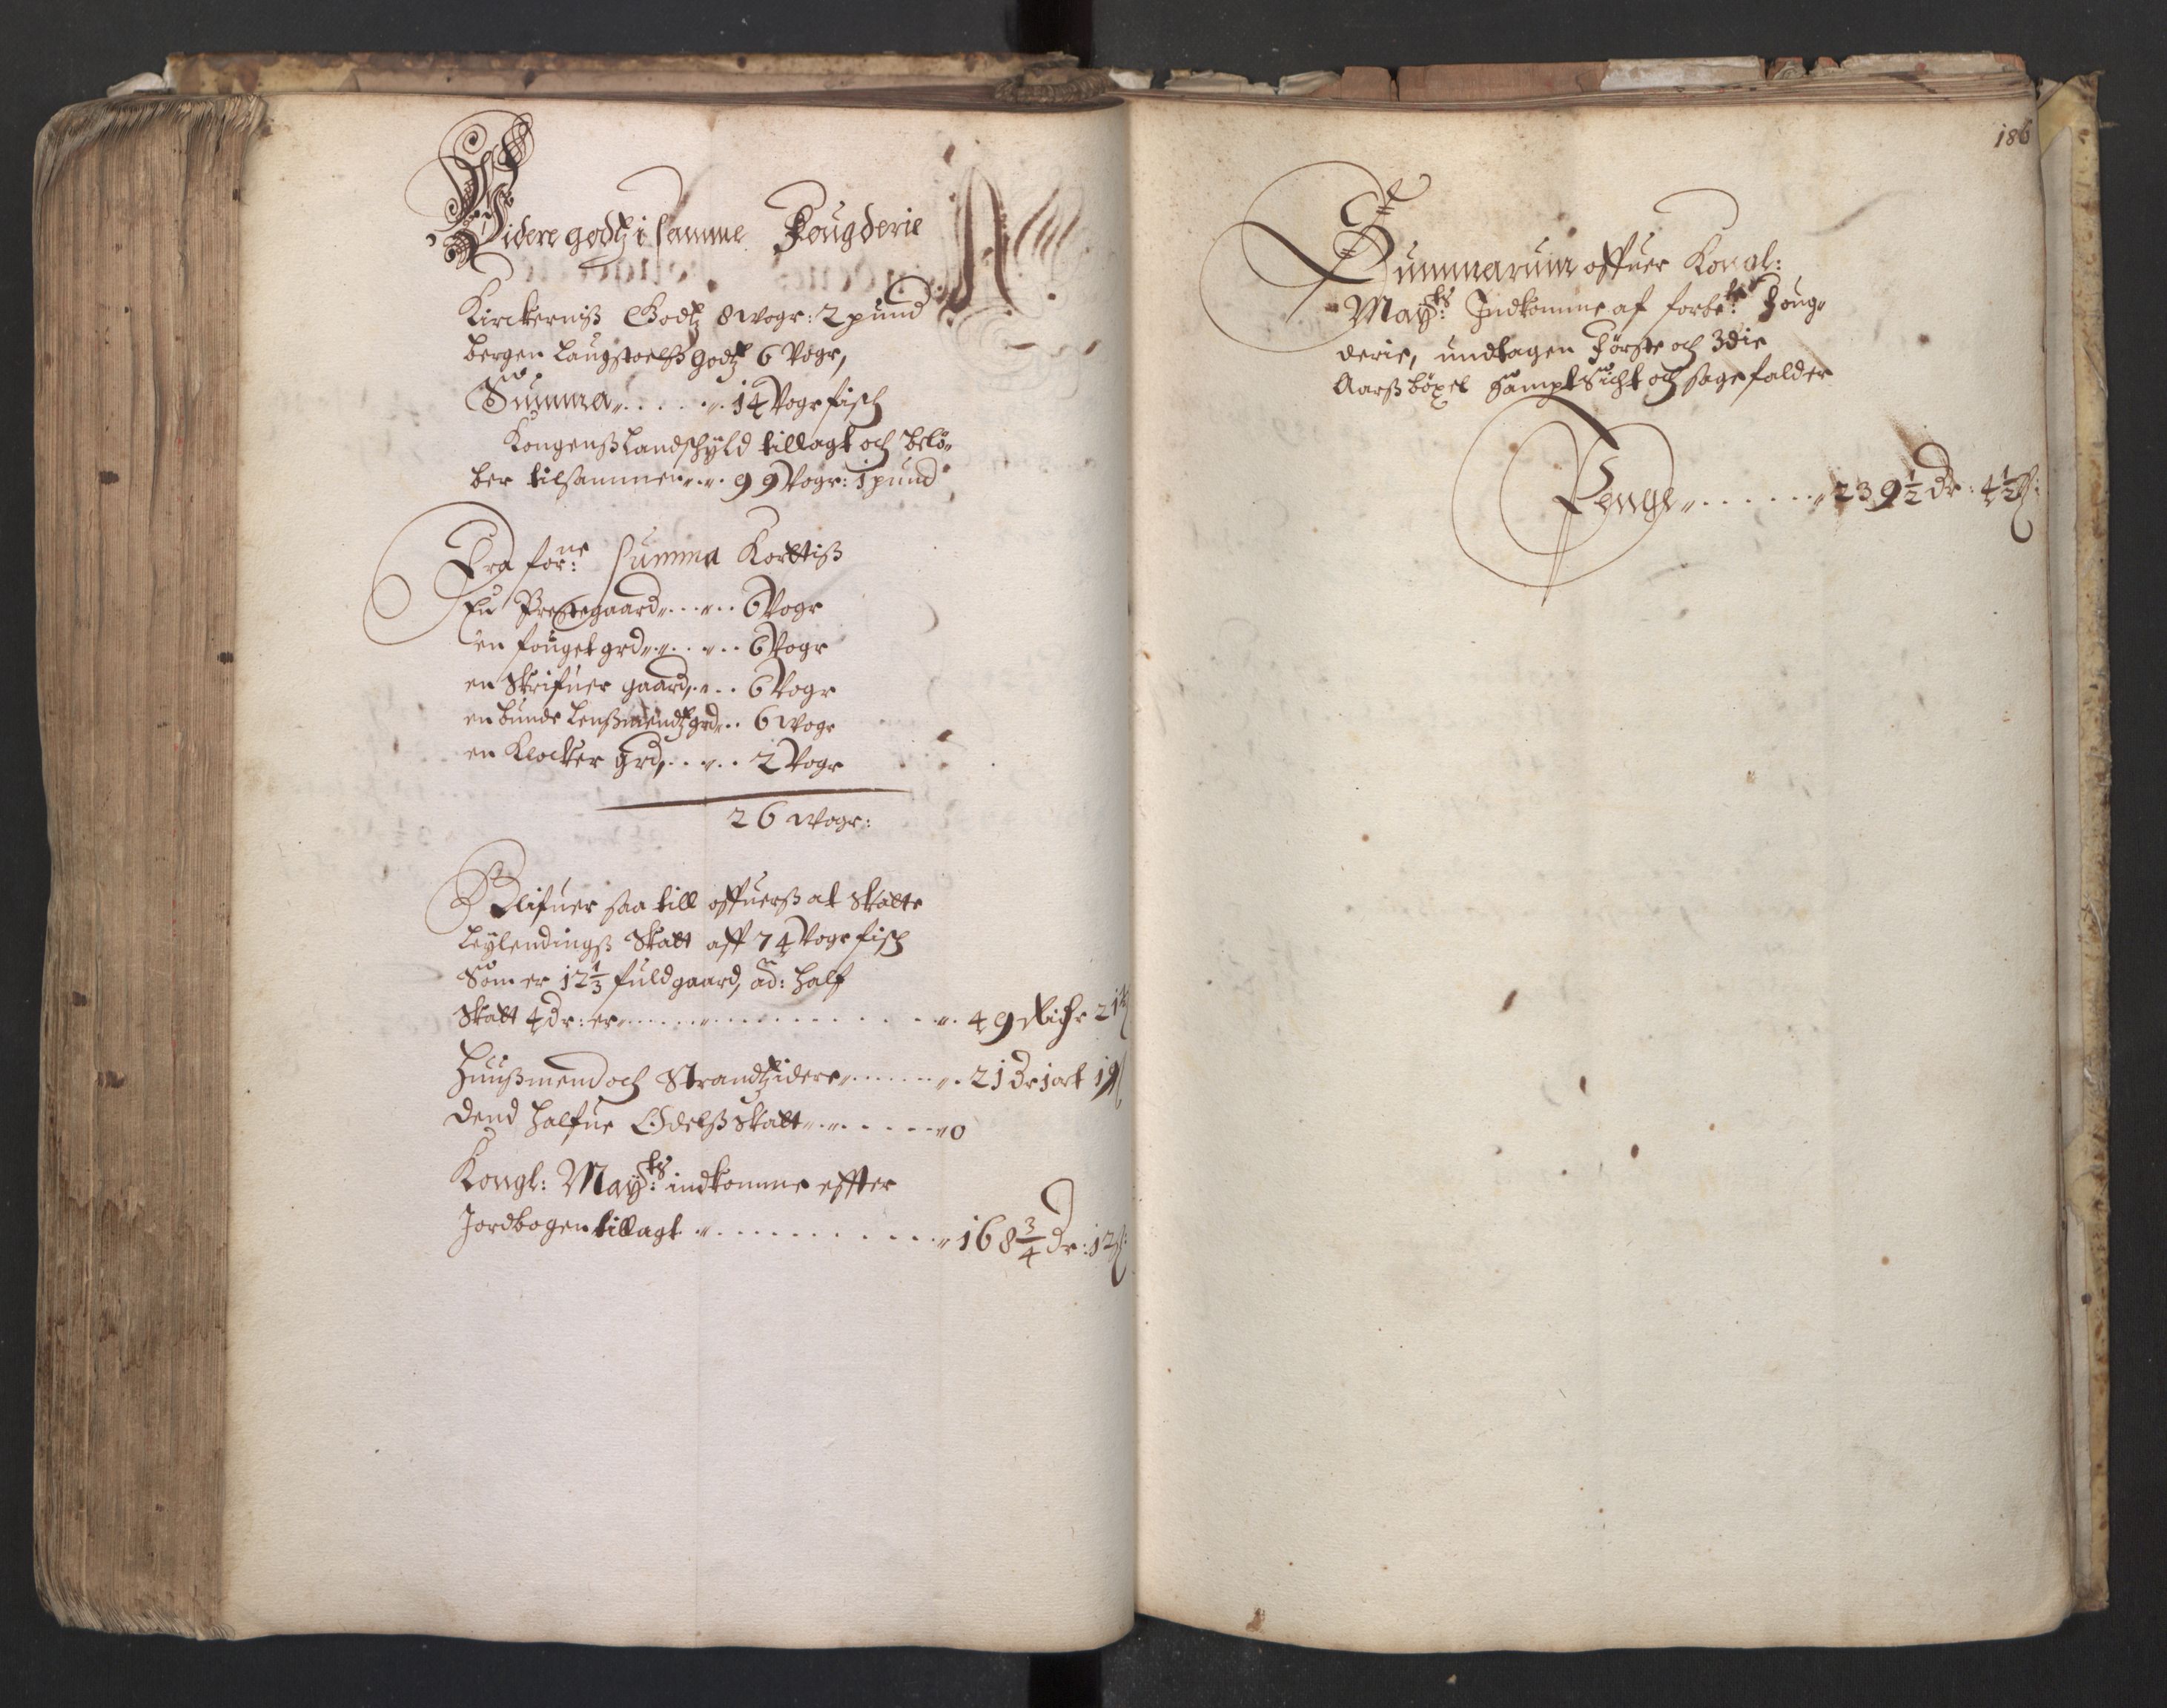 Videre godtz i samme Fougderie
Kirckerniß Godtz 8 wogr: 2 pund
bergen Laugstoelß godtz 6 Vogr,
Summa . . . . . 14 Vogr fisch
Kongenß Landschyld tillagt och belö-
ber tilsammen . . 99 Vogr: 1 pund
Fra for:ne summa Korttiß
En Prestegaard . . . . 6 Vogr
en fouget grd . . . . 6 Vogr
en Skrifuer gaard . . . 6 Vogr
en bunde Lenßmendtz grd . . 6 wogr
en Klocker grd, . . . . 2 Vogr
26 wogr:
Blifuer saa till offuerß at Skatte
Leylendingß Skatt aff 74 Vogr fisch
Som er 12 1/3 fuldgaard, ad: half
Skatt 4 dr: er . . . . . . . . 49 Richr 21
Huußmend och Strandtzidere . . . . . . 21 Dr 1 ort 19 ß
Dend halfue Odelß Skatt . . . . . . 0
Kongl: May:ts indkomme effter
Jordbogen tillagt . . . . . . . . . 168 3/4 Dr: 12 ß:
186
Summarum offuer Kongl:
May:ts Indkomme af forbe:te Foug-
derie, undtagen Förste och 3die
Aarß böxel sampt Sicht och sagefalder
Penge . . . . . . . 239 1/2 Dr: 4 1/2 ß: